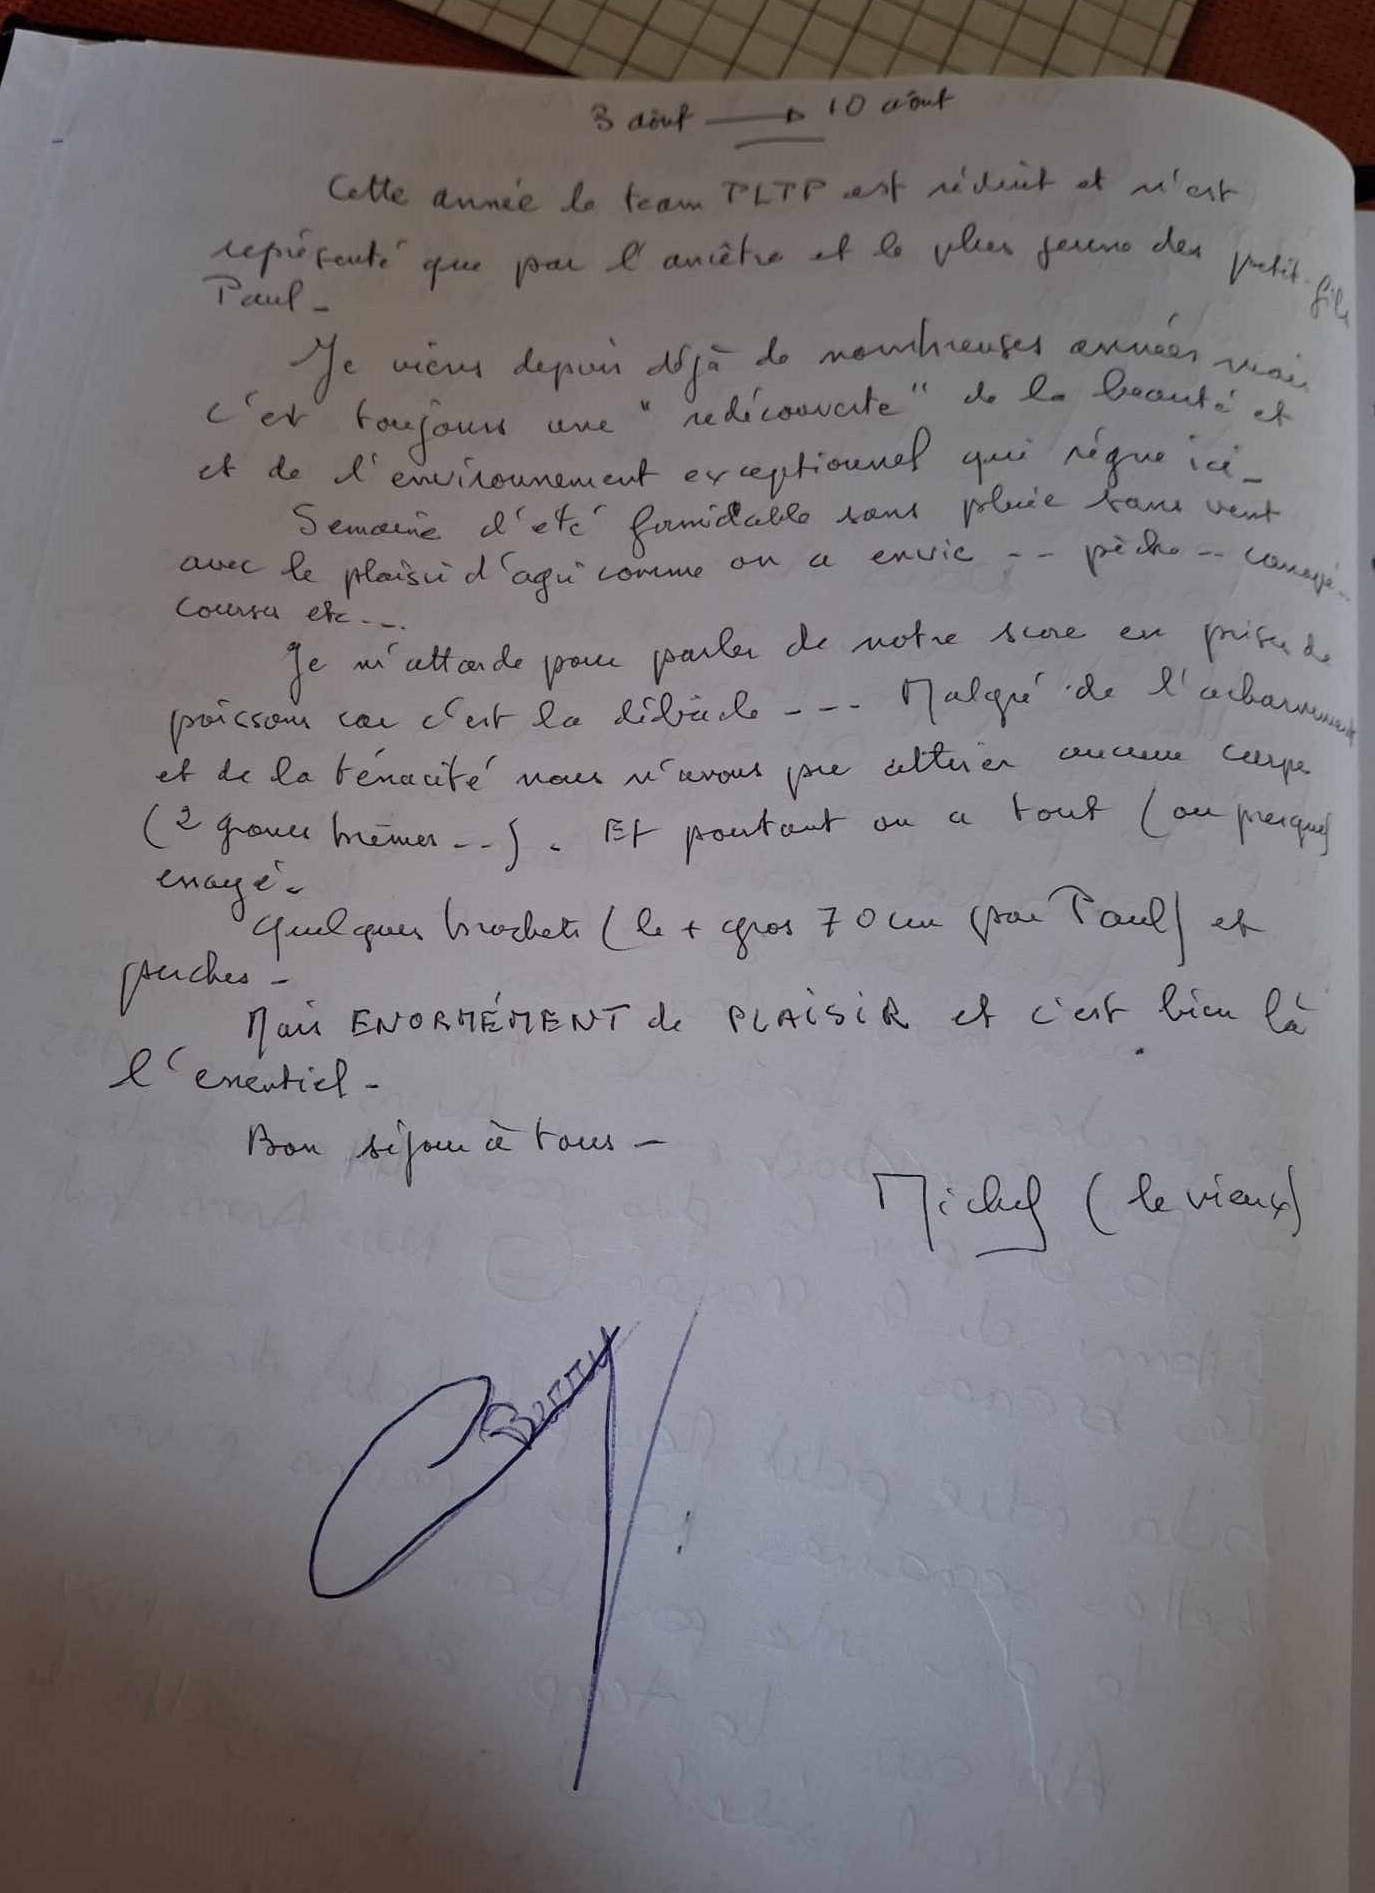 3 août → 10 août
Cette année le team PLTP est réduit et n'est
représenté que par l'ancêtre et le plus jeune des petit-fils
Paul -
Je viens depuis déjà de nombreuses années mais
c'est toujours une "redécouverte" de la beauté et
et de l'environnement exceptionnel qui règne ici -
Semaine d'été formidable sans pluie sans vent
avec le plaisir d'agir comme on a envie -- pêche -- canoyé --
courses etc ---
Je m'attarde pour parler de notre score en prises de
poissons car c'est la débâcle --- Malgré de l'acharnement
et de la ténacité nous n'avons pu attirer aucune carpe
(2 grosses brèmes --). Et pourtant on a tout (ou presque)
essayé.
Quelques brochets (le + gros 70 cm par Paul) et
perches -
Mais ENORMÉMENT de PLAISIR et c'est bien là
l'essentiel -
Bon séjour à tous -
Michel (le vieux)